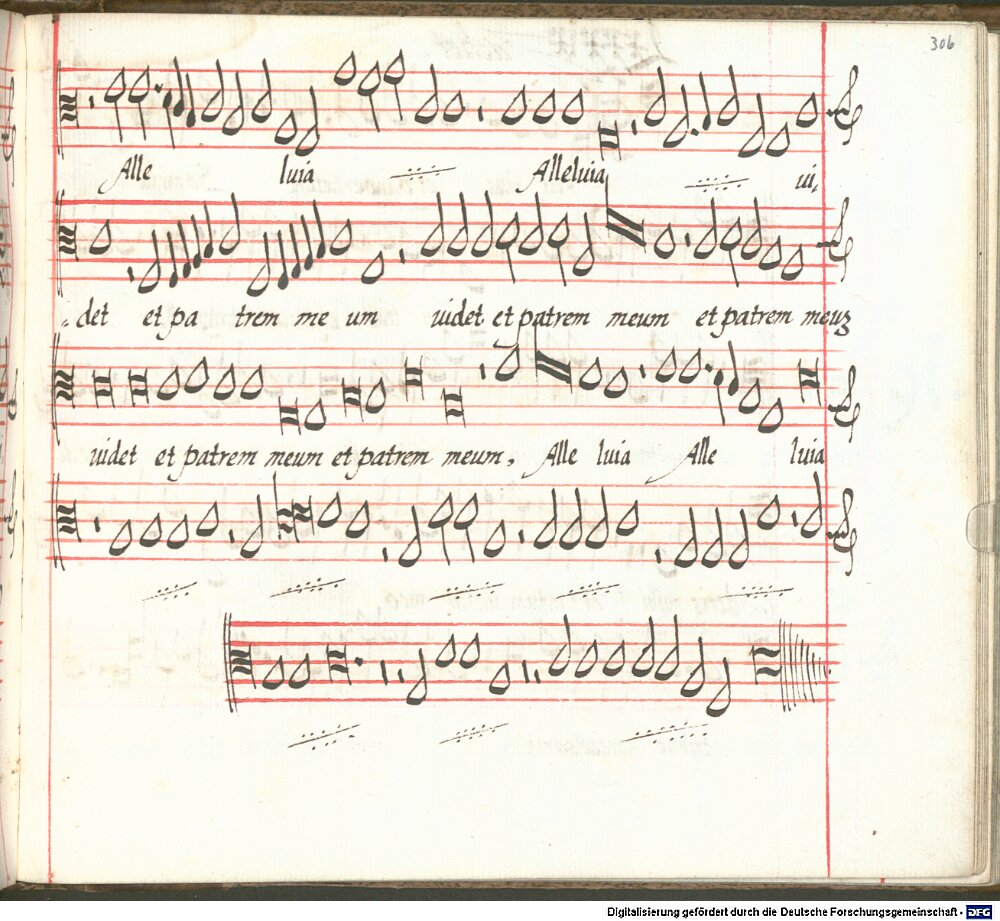 306
Alle luia Alleluia ui,
det et pa trem me um uidet et patrem meum et patrem meuʒ
uidet et patrem meum et patrem meum, Alle luia Alle luia
Digitalisierung gefördert durch die Deutsche Forschungsgemeinschaft - DFG